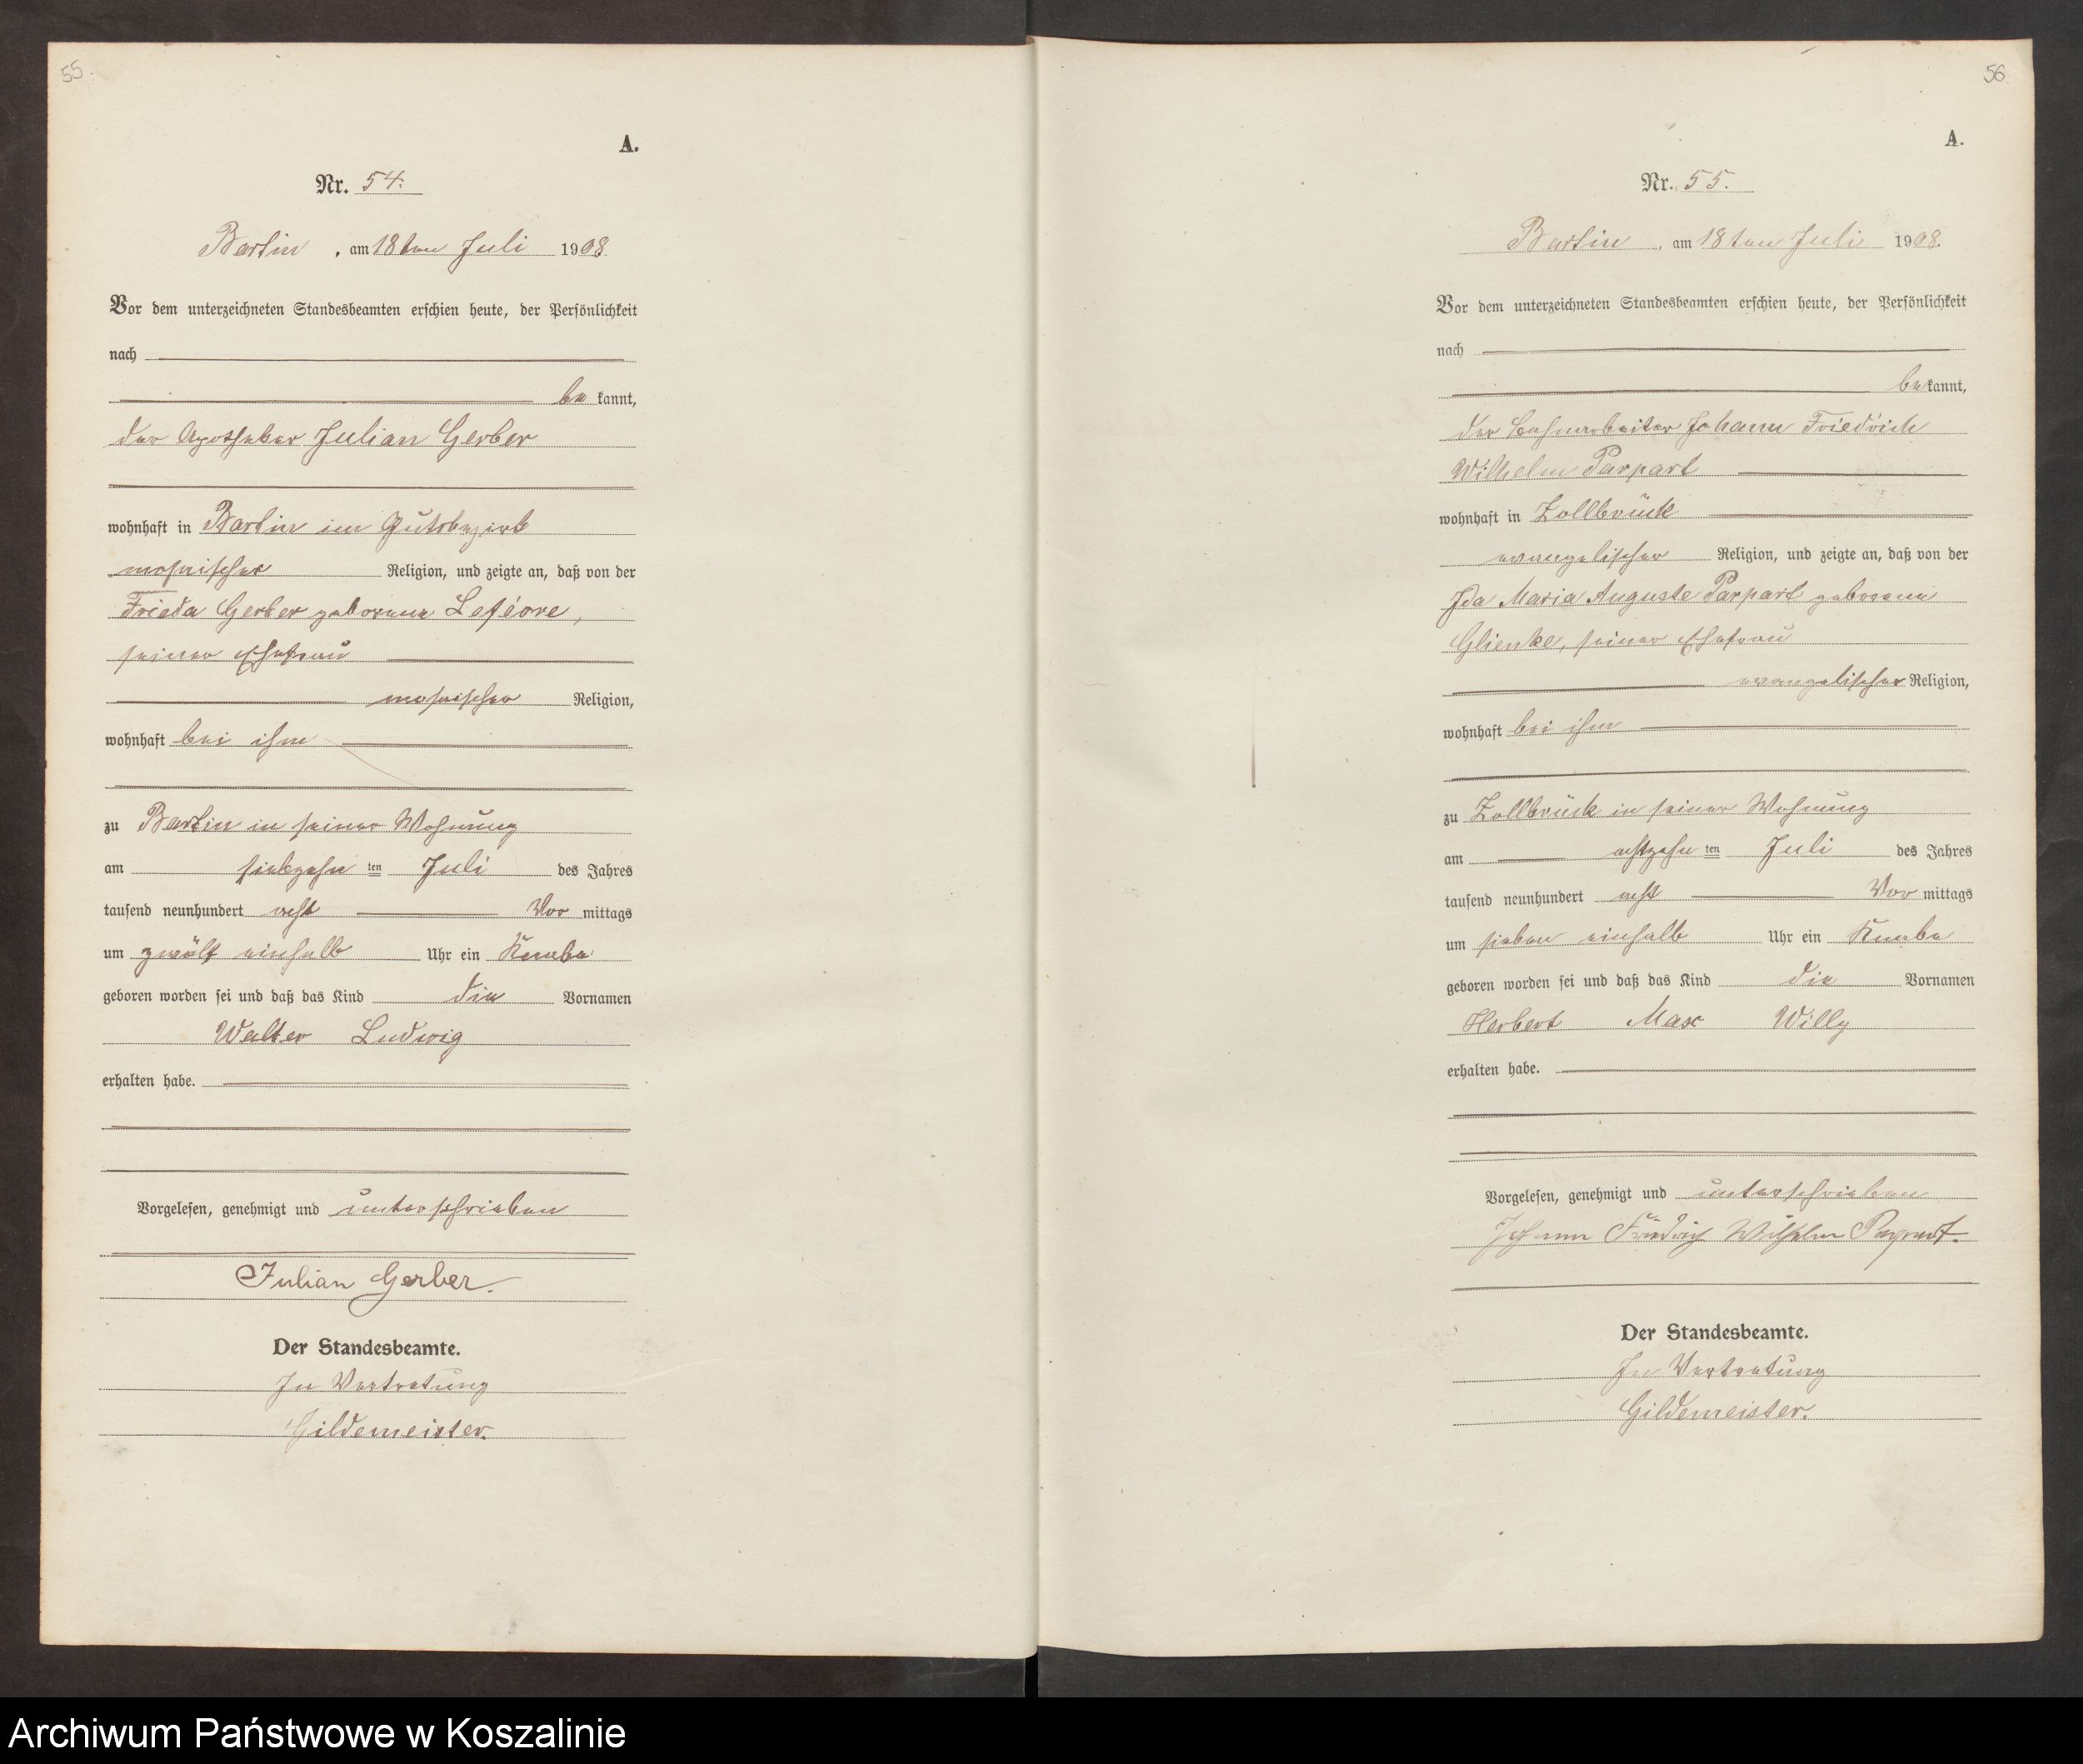 55.
A.
Nr. 54.
Bartin, am 18ten Juli 1908.
Vor dem unterzeichneten Standesbeamten erschien heute, der Persönlichkeit
nach
bekannt,
der Apotheker Julian Gerber
wohnhaft in Bartin im Gutsbezirk
mosaischer Religion, und zeigte an, daß von der
Frieda Gerber geborene Lefévre,
seiner Ehefrau
mosaischer Religion,
wohnhaft bei ihm
zu Bartin in seiner Wohnung
am siebzehnten Juli des Jahres
tausend neunhundert acht Vormittags
um zwölf einhalb Uhr ein Knabe
geboren worden sei und daß das Kind die Vornamen
Walter Ludwig
erhalten habe.
Vorgelesen, genehmigt und unterschrieben
Julian Gerber.
Der Standesbeamte.
In Vertretung
Gildemeister.
56
A.
Nr. 55.
Bartin, am 18ten Juli 1908.
Vor dem unterzeichneten Standesbeamten erschien heute, der Persönlichkeit
nach
bekannt,
der Bahnarbeiter Johann Friedrich
Wilhelm Parpart
wohnhaft in Zollbrück
evangelischer Religion, und zeigte an, daß von der
Ida Maria Auguste Parpart geborene
Glienke, seiner Ehefrau
evangelischer Religion,
wohnhaft bei ihm
zu Zollbrück in seiner Wohnung
am achtzehnten Juli des Jahres
tausend neunhundert acht Vormittags
um sieben einhalb Uhr ein Knabe
geboren worden sei und daß das Kind die Vornamen
Herbert Max Willy
erhalten habe.
Vorgelesen, genehmigt und unterschrieben
Johann Friedrich Wilhelm Parpart.
Der Standesbeamte.
In Vertretung
Gildemeister.
Archiwum Państwowe w Koszalinie